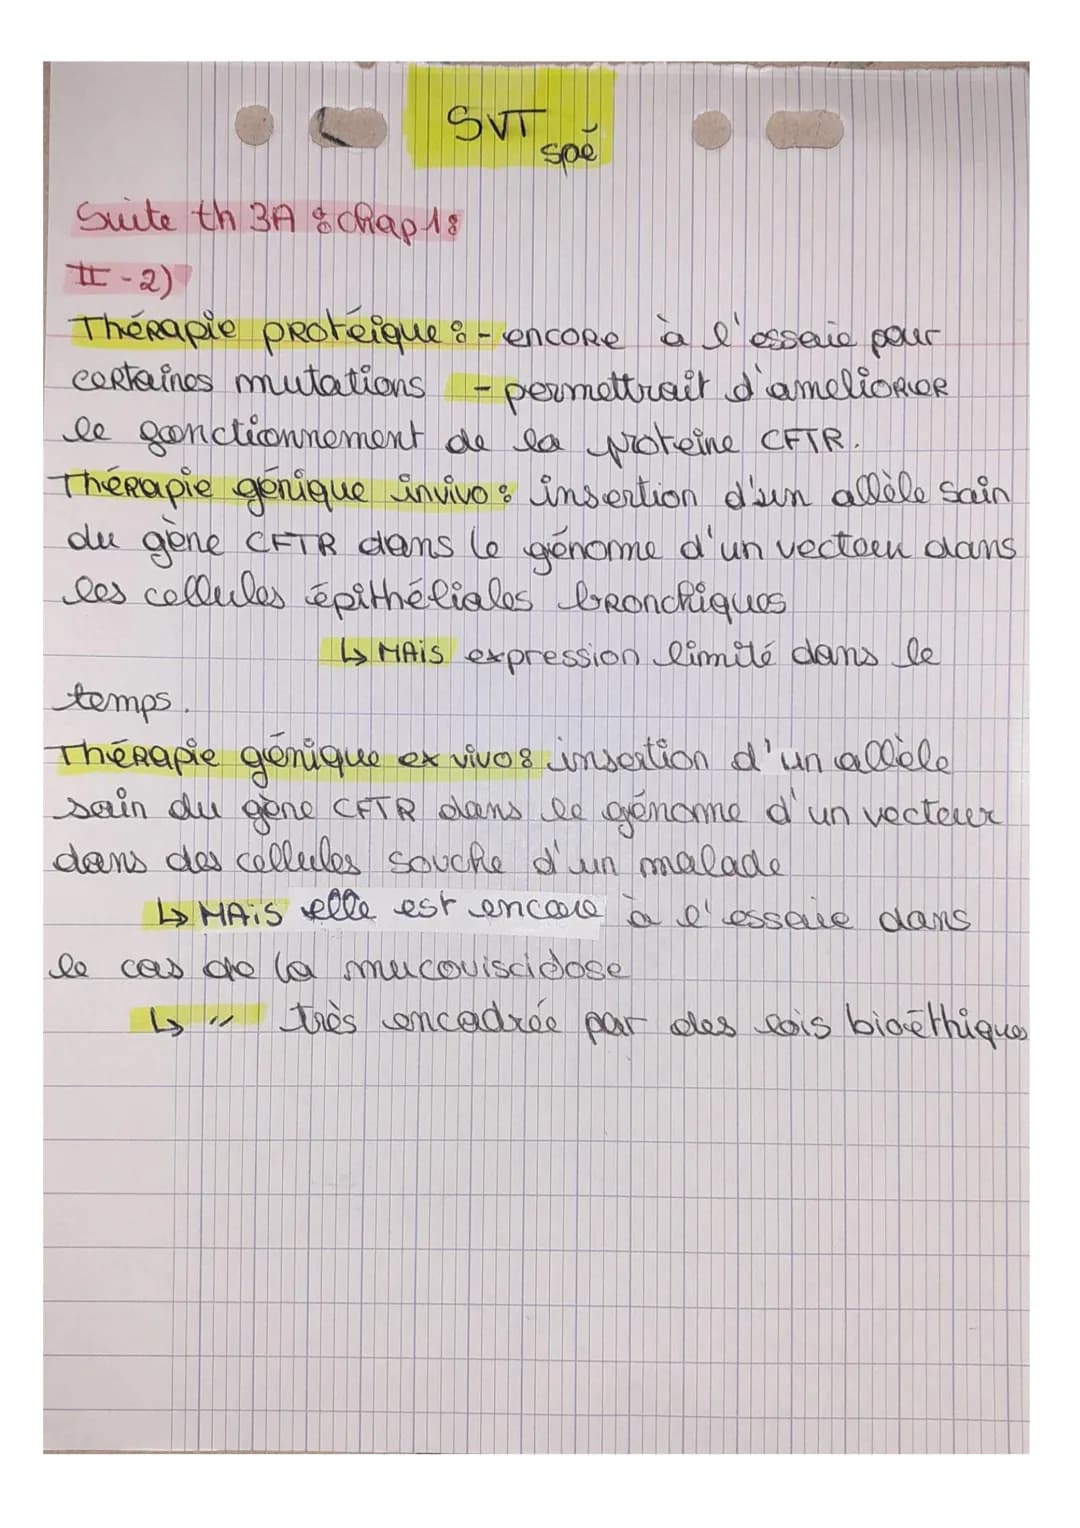 SVT
spé
Suite th 3A : chap 1 :
II - 2)
Thérapie protéique : - encore à l'essaie pour
certaines mutations - permettrait d'ameliorer
le fonctionnement de la proteine CFTR.
Thérapie génique in vivo : insertion d'un allèle sain
du gène CFTR dans le génome d'un vecteur dans
les cellules épithéliales bronchiques
↳ MAIS expression limité dans le
temps.
Thérapie génique ex vivo : insertion d'un allèle
sain du gène CFTR dans le génome d'un vecteur
dans des cellules souche d'un malade
↳ MAIS elle est encore à l'essaie dans
le cas de la mucoviscidose
↳ " très encadrée par des lois bioéthiques